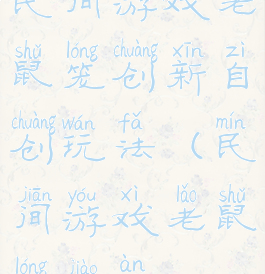 民间游戏老
shǔ lóng chuàng xīn zì
鼠笼创新自
chuàng wán fǎ mín
创玩法（民
jiān yóu xì lǎo shǔ
间游戏老鼠
lóng jiào àn